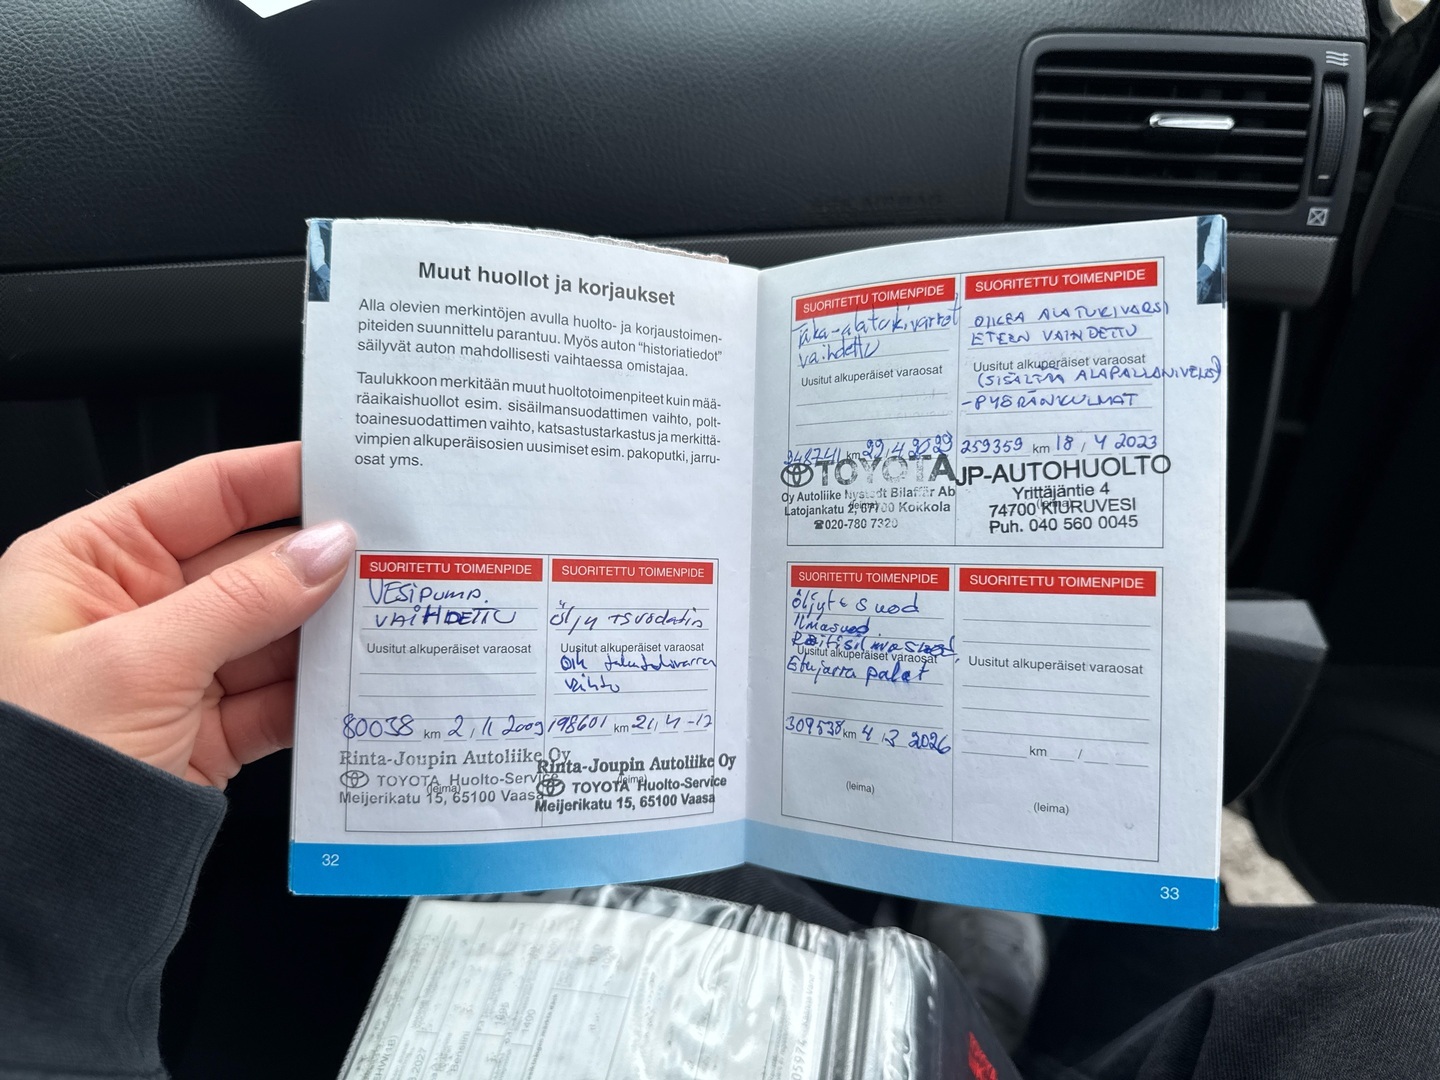 Muut huollot ja korjaukset
Alla olevien merkintöjen avulla huolto- ja korjaustoimen-
piteiden suunnittelu parantuu. Myös auton "historiatiedot"
säilyvät auton mahdollisesti vaihtaessa omistajaa.
Taulukkoon merkitään muut huoltotoimenpiteet kuin mää-
räaikaishuollot esim. sisäilmansuodattimen vaihto, polt-
toainesuodattimen vaihto, katsastustarkastus ja merkittä-
vimpien alkuperäisosien uusimiset esim. pakoputki, jarru-
osat yms.
SUORITETTU TOIMENPIDE
VESIPUMP.
VAIHDETTU
Uusitut alkuperäiset varaosat
80038 km 2 / 11 2009
Rinta-Joupin Autoliike Oy
TOYOTA Huolto-Service
(leima)
Meijerikatu 15, 65100 Vaasa
SUORITETTU TOIMENPIDE
Öljy
Uusitut alkuperäiset varaosat
Oik
vaihto
198601 km 21 / 4 -17
Rinta-Joupin Autoliike Oy
(leima)
TOYOTA Huolto-Service
Meijerikatu 15, 65100 Vaasa
32
SUORITETTU TOIMENPIDE
Taka-alatukivarret
vaihdettu
Uusitut alkuperäiset varaosat
248741 km 29 / 4
TOYOTA
Oy Autoliike Nystedt Bilaffär Ab
(leima)
Latojankatu 2, 67700 Kokkola
☎020-780 7320
SUORITETTU TOIMENPIDE
OIKEA ALATUKIVARSI
ETEEN VAIHDETTU
Uusitut alkuperäiset varaosat
(SISÄLTÄÄ ALAPALLONIVELEN)
-PYÖRÄNKULMAT
259359 km 18 / 4 2023
JP-AUTOHUOLTO
Yrittäjäntie 4
(leima)
74700 KIURUVESI
Puh. 040 560 0045
SUORITETTU TOIMENPIDE
Öljyt + suod
Ilmasuod.
Raitisilmasuod,
Uusitut alkuperäiset varaosat
Etujarru palat
309538 km 4 / 3 2026
(leima)
SUORITETTU TOIMENPIDE
Uusitut alkuperäiset varaosat
km /
(leima)
33